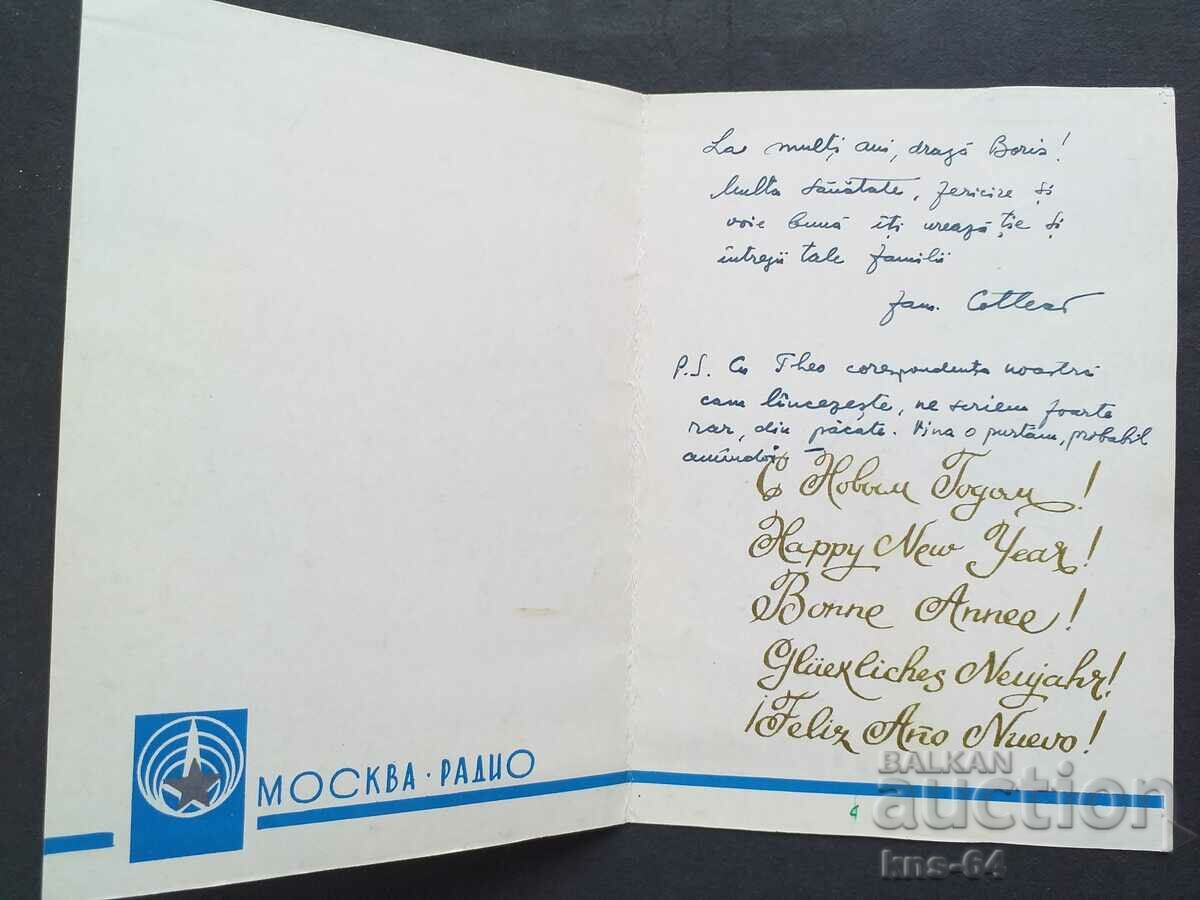 МОСКВА · РАДИО
La mulți ani, dragă Boris!
Multă sănătate, fericire și
voie bună îți urează ție și
întregii tale familii
fam.
P.S. Cu Theo corespondența noastră
cam lîncezește, ne scriem foarte
rar, din păcate. Vina o purtăm, probabil
amîndoi
С Новым Годом!
Happy New Year!
Bonne Annee!
Glückliches Neujahr!
¡Feliz Año Nuevo!
4
BALKAN
auction
kns-64